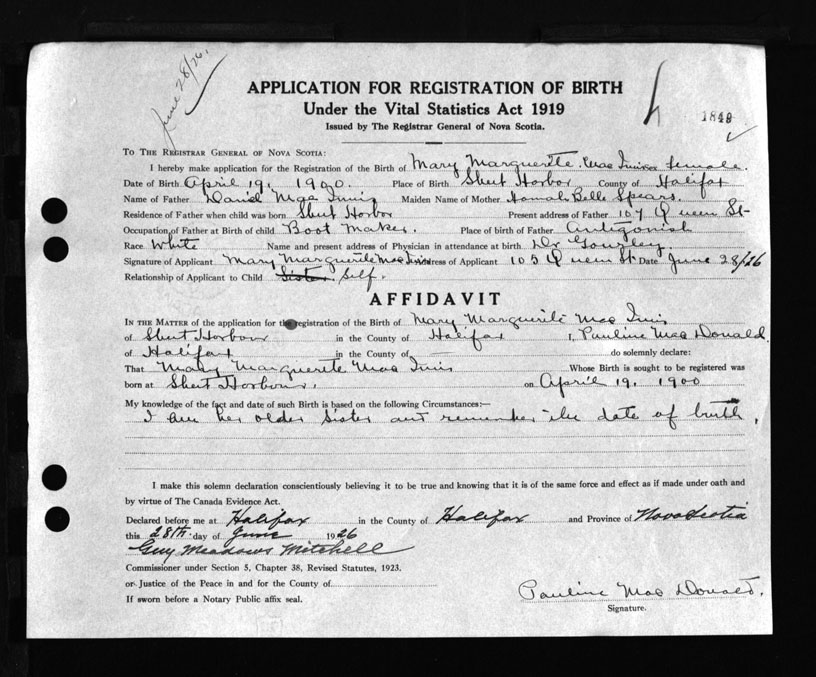 June 28/26.
APPLICATION FOR REGISTRATION OF BIRTH
Under the Vital Statistics Act 1919
Issued by The Registrar General of Nova Scotia.
TO THE REGISTRAR GENERAL OF NOVA SCOTIA:
I hereby make application for the Registration of the Birth of Mary Marguerite. female.
Date of Birth April 19, 1900. Place of Birth Sheet Harbor County of Halifax
Name of Father Daniel Mac Innis Maiden Name of Mother Belle Spears.
Residence of Father when child was born Sheet Harbor Present address of Father 107 Queen St-
Occupation of Father at Birth of child Boot Maker. Place of birth of Father Antigonish
Race White Name and present address of Physician in attendance at birth Dr Gourley
Signature of Applicant Mary Marguerite Mac Innis Address of Applicant 105 Queen St. Date June 28/26
Relationship of Applicant to Child Sister. Self.
AFFIDAVIT
IN THE MATTER of the application for the registration of the Birth of Mary Marguerite Mac Innis
of Sheet Harbour in the County of Halifax I, Pauline Mac Donald
of Halifax in the County of do solemnly declare:
That Mary Marguerite Mac Innis Whose Birth is sought to be registered was
born at Sheet Harbour. on April 19, 1900
My knowledge of the fact and date of such Birth is based on the following Circumstances:—
I am her older sister and remember the date of birth.
I make this solemn declaration conscientiously believing it to be true and knowing that it is of the same force and effect as if made under oath and
by virtue of The Canada Evidence Act.
Declared before me at Halifax in the County of Halifax and Province of Nova Scotia
this 28th day of June 1926
Guy Meadows Mitchell
Commissioner under Section 5, Chapter 38, Revised Statutes, 1923.
or Justice of the Peace in and for the County of
If sworn before a Notary Public affix seal.
Pauline Mac Donald.
Signature.